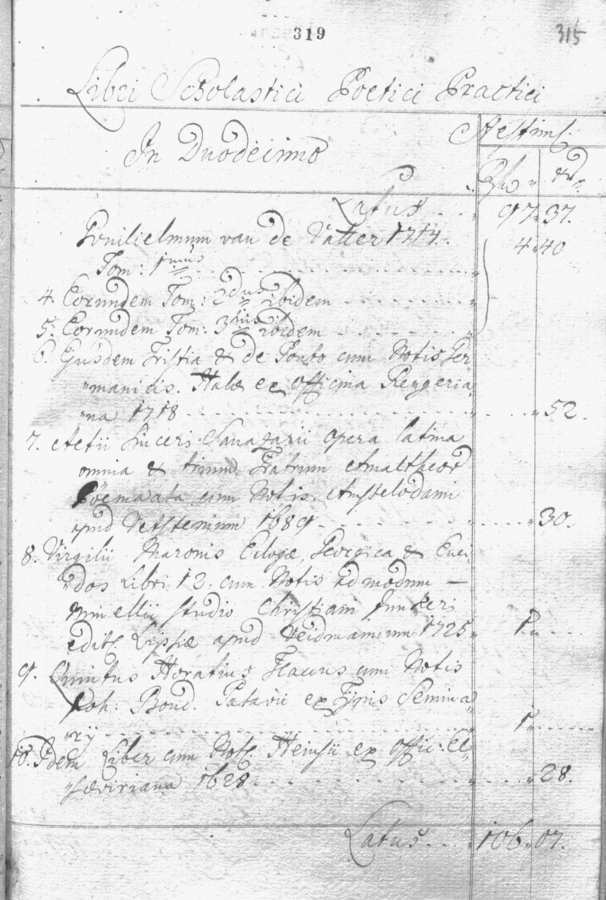 319
315
Libri Scholastici Poetici Practici
In Duodecimo
Aestim.
Rho xr
Latus . . 97. 37.
Guilielmum van de Vatter 1714.
Tom: 1mus . . . 4. 40
4. Eorumdem Tom: 2dus ibidem
5. Eorumdem Tom: 3tius ibidem
6. Ejusdem Tristia & de Ponto cum Notis Ger
manicis. Halæ ex officina Rengeria
na 1718 . . . 52.
7. Actii Sinceri Sanazarii opera latina
omnia & trium Fratrum Amaltheor
Poëmaata cum Notis. Amstelodami
apud Vetstenium 1689 . . . 30.
8. Virgilii Maronis Ecloge, Georgica & Enei
dos Libri 12. cum Notis ad modum —
Minellii studio Christiani Junkeri
edits Lipsiæ apud Veidmannum 1725 . . 1. . . .
9. Quintus Horatius Flaccus cum Notis
Joh: Bond. Patavii ex Typis Semina
rij . . . 1. . . .
10. Idem Liber cum Not. Heinsii ex offic: El
seviriana 1628 . . . 28.
Latus . . . 106. 07.